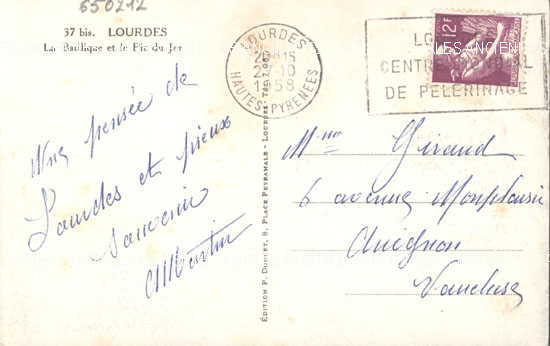 650212
37 bis. LOURDES
La Basilique et le Pic du Jer
Une pensée de
Lourdes et pieux
souvenir
Martin
ÉDITION P. DOUCET, 8, PLACE PEYRAMALE - LOURDES
LOURDES
15
10
1958
HAUTES-PYRENEES
12F
CENTRE MONDIAL
DE PELERINAGE
Mme Giraud
6 avenue Monplaisir
Avignon
Vaucluse